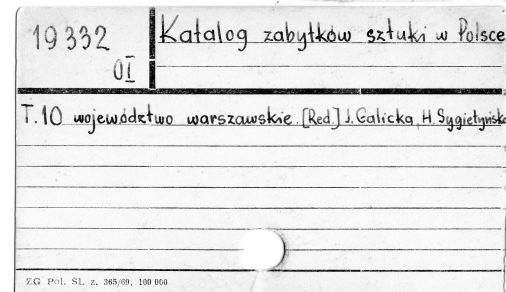 19332
OI
Katalog zabytków sztuki w Polsce
T. 10 województwo warszawskie. [Red.] J. Galicka, H. Sygietyńska
ZG Pol. Śl. z. 365/69. 100 000